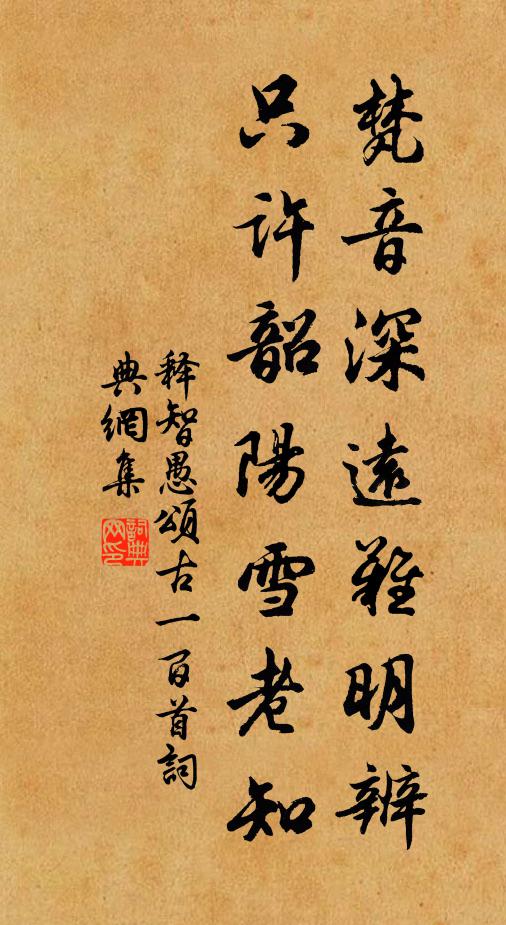 梵音深遠難明辨
只许韶陽雪老知
释智愚頌古一百首詞
典網集
詞典网印